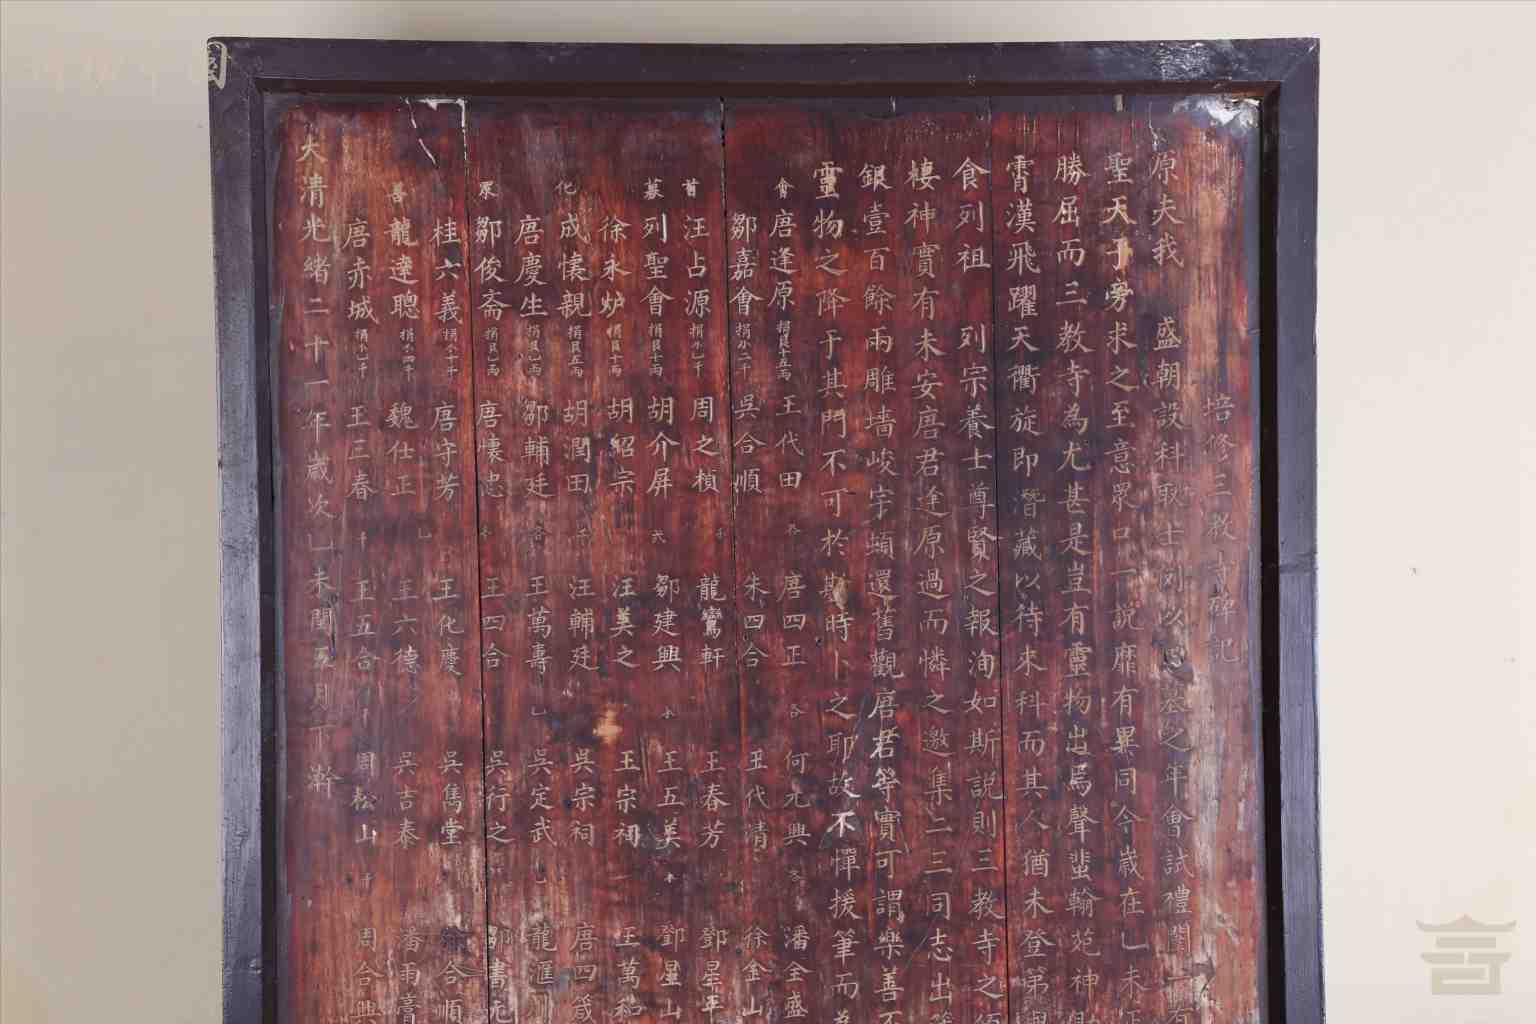 培修三教寺碑記
原夫我 盛朝設科取士例以之年會試禮闈
聖天子旁求之至意眾口一説靡有異同今歲在乚未
勝屈而三教寺為尤甚是豈有靈物出焉聲蜚輸苑神
霄漢飛躍天衢旋即潛藏以待來科而其人猶未登第
食列祖 列宗養士尊賢之報洵如斯説則三教寺之
棲神實有未安唐君逢原過而憐之邀集二三同志出
銀壹百餘兩雕墻峻宇頓還舊觀唐君等實可謂樂善不
靈物之降于其門不可於斯時卜之耶故不憚援筆而為
會 唐逢原 捐艮十五兩 王代田 各 唐四正 各 何元興 各 潘全盛
鄒嘉會 捐小二千 吳合順 朱四合 王代清 徐金山
首 汪占源 捐小乚千 周之楨 龍鸞軒 王春芳 鄧星平
募 列聖會 捐艮十兩 胡介屏 鄒建興 王五美 鄧星山
徐永炉 捐艮十兩 胡紹宗 汪美之 王宗祠 王萬和
化 成懷親 捐艮五兩 胡潤田 汪輔廷 吳宗祠 唐四箴
唐慶生 捐艮乚兩 鄒輔廷 各 王萬壽 乚 吳定武 乚 龍滙川
眾 鄒俊斋 捐艮乚兩 唐懷忠 王四合 吳行之 鄒書
桂六義 捐小十千 唐守芳 王化慶 吳雋堂 合順
善 龍達聰 捐小四千 魏仕正 王六德 吳吉泰 潘雨膏
唐赤城 捐小乚千 王三春 王五合 周松山 千 周合興
大清光緒二十一年歲次乚未閏五月下澣